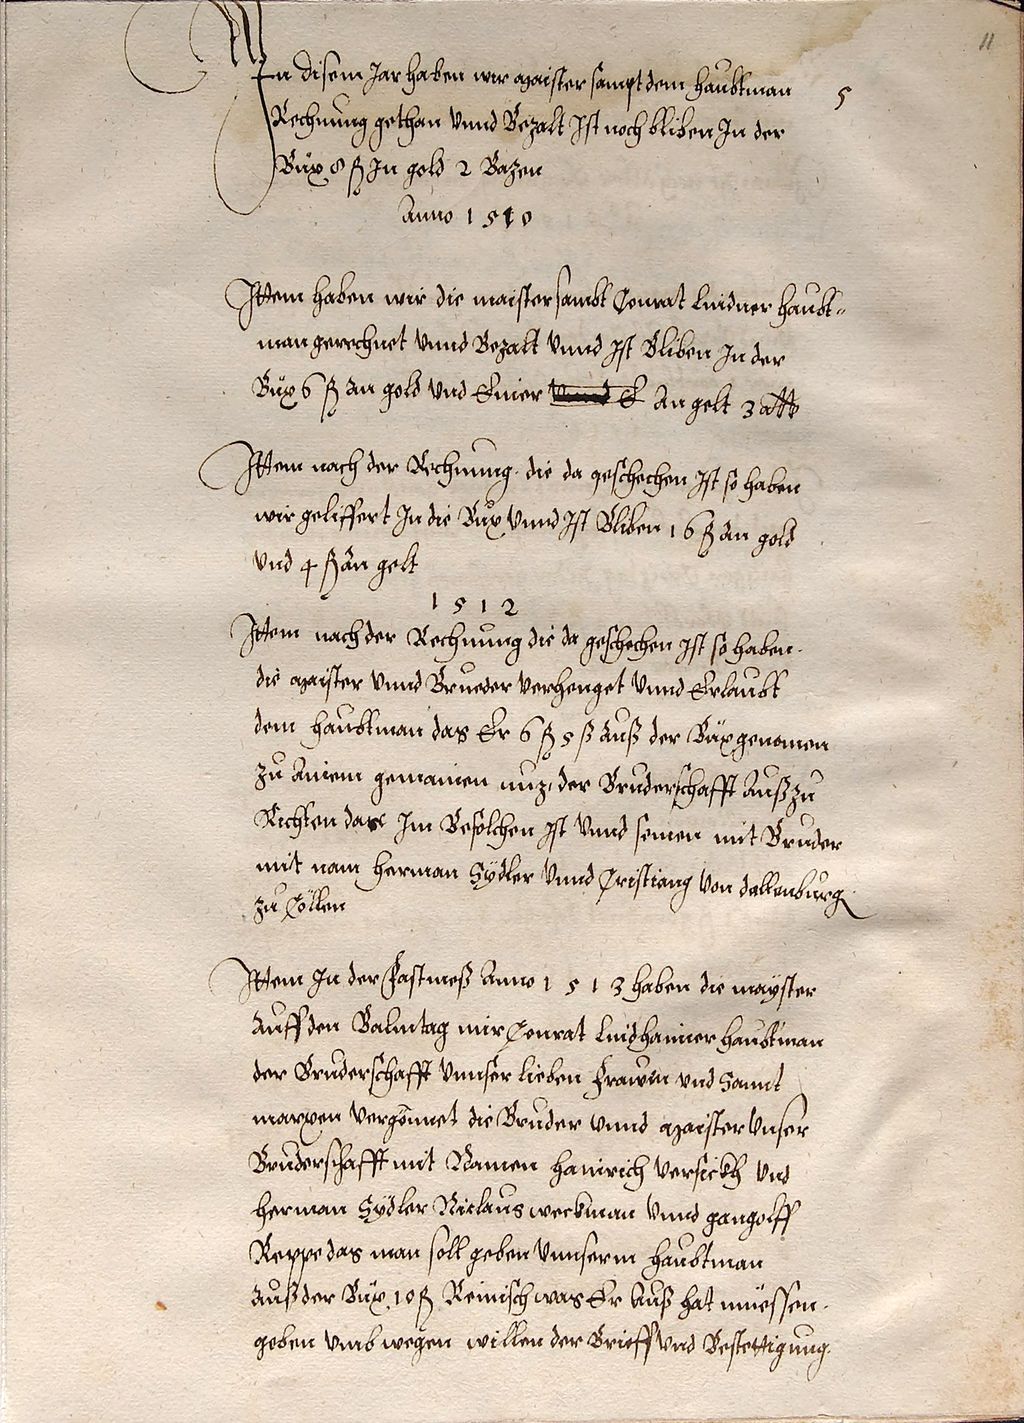 11
In disem Jar haben wir maister sampt dem haubtman
5
Rechnung gethan vnnd Bezalt Ist noch bliben In der
Bux 8 fl In gold 2 Bazen
Anno 1510
Ittem haben wir die maister sambt Conrat Lindner haubt-
man gerechnet vnnd Bezalt vnnd Ist Bliben In der
Bux 6 fl An gold vnd An gelt 3
Ittem nach der Rechnung die da geschechen Ist so haben
wir geliffert In die Bux vnnd Ist Bliben 16 fl An gold
vnd 4 fl An gelt
1512
Ittem nach der Rechnung die da geschechen Ist so haben
die maister vnnd Brueder verhenget vnnd Erlaubt
dem haubtman das Er 6 fl 5 ß Auß der Bux genomen
zu Ainem gemainen nuz, der Bruderschafft Auß zu
Richten das Im Befolchen Ist vnnd seinen mit Bruder
mit nam herman Sydler vnnd Cristiang von dallenburg
zu Cöllen
Ittem In der Fastmeß Anno 1513 haben die mayster
Auff den Balmtag mir Conrat haubtman
der Bruderschafft vnnser lieben Frawen vnd Sannt
marxen vergönnet die Bruder vnnd maister vnser
Bruderschafft mit Namen hainrich vnd
herman Sydler Niclaus weckman vnnd gangolff
Reppe das man soll geben vnnserm haubtman
Auß der Bux 10 fl Reinisch was Er Auß hat müessen
geben vmb wegen willen der Brieff vnd Bestettigung